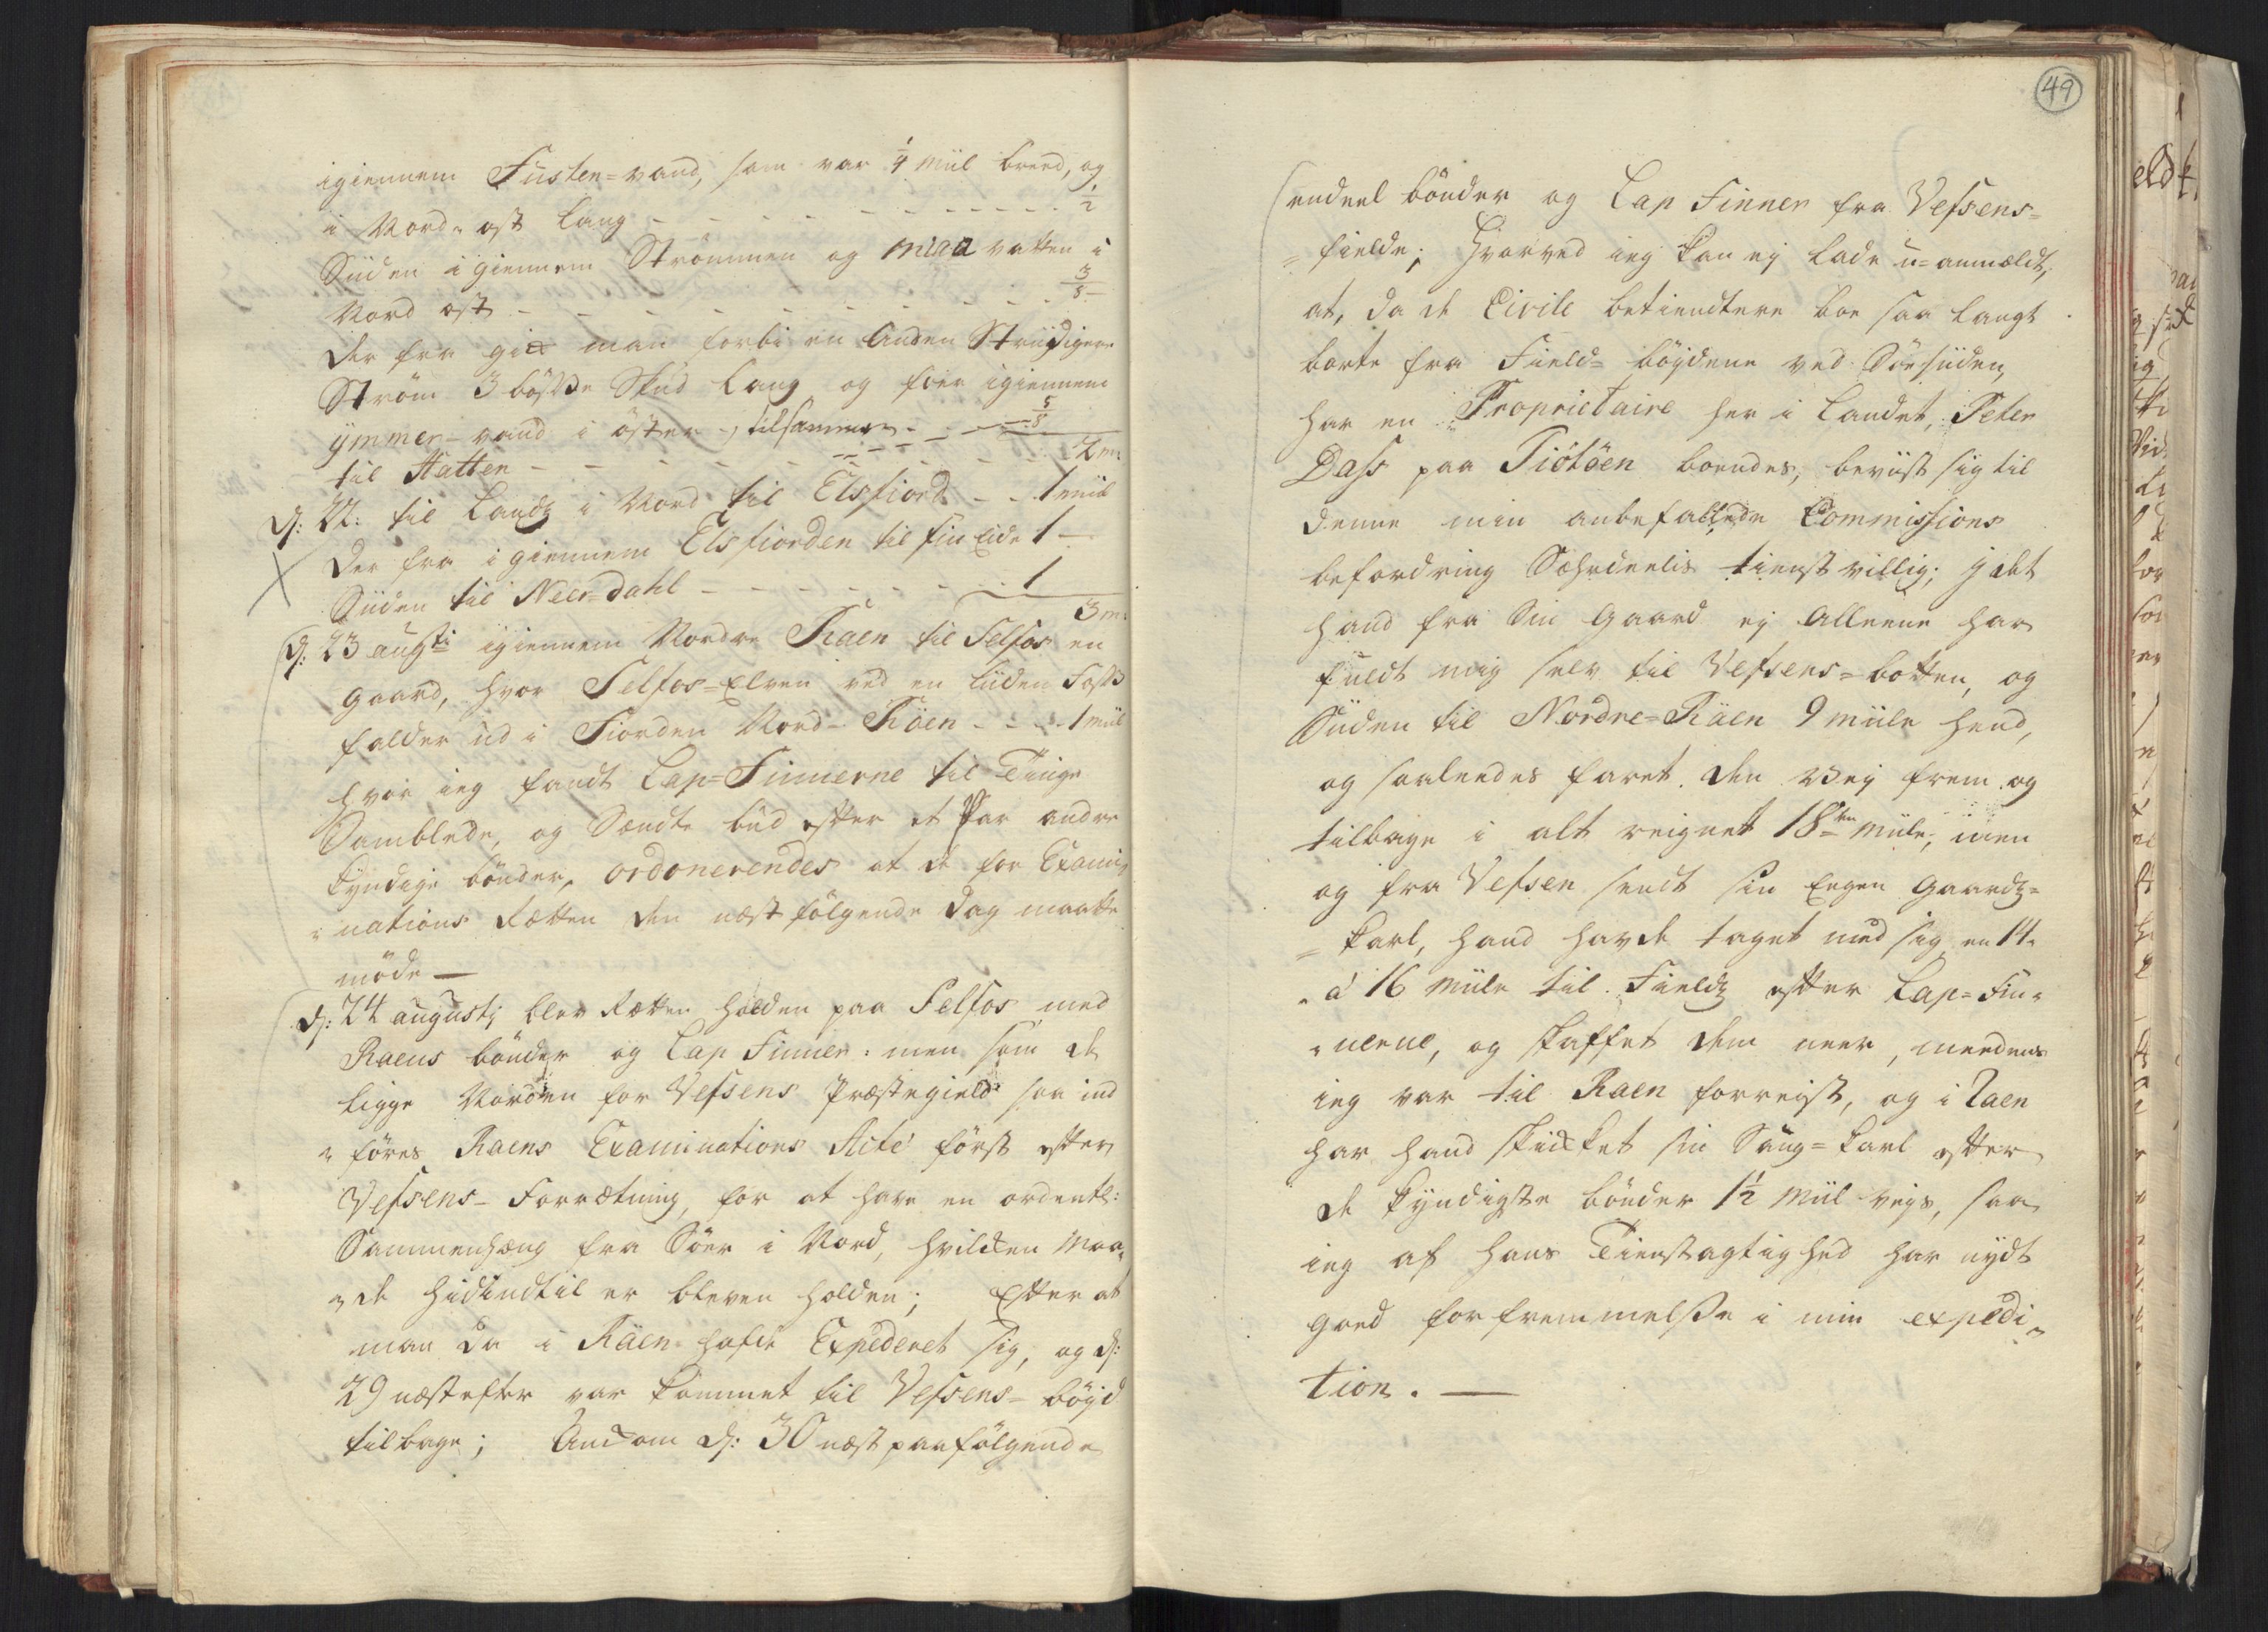 igiennem Fusten=vand, som var 1/4 miil breed, og
i Nord=ost lang - - - - - - - - - - 1/2
Siiden igiennem Strömmen og miaa vatten i
Nord ost - - - - - - - - - 3/8
der fra gik man forbi en anden Striidigere
Ström 3 bösse Skud lang og foer igiennem
ÿmmer=vand i öster - tilsammen - - - 5/8
til Hatten - - - - - - - - - 2 m:
d: 22: til Landz i Nord til Elsfiord - - 1 miil
der fra igiennem Elsfiorden til fin Eide 1 -
Siiden til Neer=dahl - - - - - - 1
3 m:
d: 23 augsti igiennem Nordre Raen til Selfos en
gaard, hvor Selfos=Elven ved en liiden Foss
falder ud i Fiorden Nord=Räen - - - 1 miil
hvor ieg fandt Lap=Finnerne til Tinge
Samblede, og Sendte bud efter et Par andre
kyndige bönder, ordonerendes at de for Exami=
=nations Retten den næst fölgende dag maatte
möde —
d: 24 augustj blev Retten holden paa Selfos med
Raens bönder og Lap Finner: men som de
ligge Norden for Vefsens Præstegield saa ind
=föres Raens Examinations Acte först efter
Vefsens=Forrætning, for at have en ordentl:
Sammenhæng fra Söer i Nord, hvilcken Maa=
=de hidindtil er bleven holden; Efter at
man da i Räen hafde Expederet sig, og d:
29 næstefter var kommet til Vefsens=böyd
tilbage; Ankom d: 30 næst paafölgende
49
endeel bönder og Lap Finner fra Vefsens=
=fielde; Hvorved ieg kan ej lade u=anmældt,
at, da de Civile betiendtere boe saa langt
borte fra Field=böydene ved Söesiiden,
har en Proprietaire her i Landet, Peter
Dass paa Tiötöen boendes, beviist sig til
denne min anbefallede Commissions
befordring Særdeelis tienstvillig; j det
hand fra Sin gaard ej Alleene har
fuldt mig selv til Vefsens=botten, og
Siiden til Nordre=Räen 9 miile hend,
og saaleedes faret den Vej frem og
tilbage i alt reignet 18ten miile, men
og fra Vefsen sendt sin Eegen gaardz=
=karl, hand hafde taget med sig en 14.
=á 16 miile til Fieldz efter Lap=Fin=
=nerne, og skaffet dem neer, meedens
ieg var til Raen forreist, og i Raen
har hand skicket sin Säng=karl efter
de kyndigste bönder 1½ miil vejs, saa
ieg af hans Tienstagtighed har nydt
goed forfremmelsse i min expedi=
tion. —